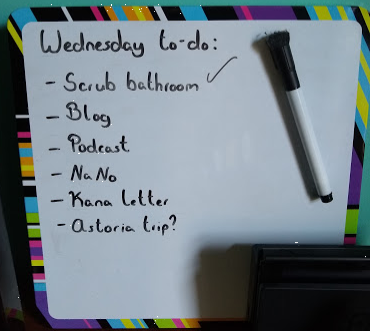 Wednesday to-do:
- Scrub bathroom ✓
- Blog
- Podcast
- NaNo
- Kana Letter
- Astoria trip?